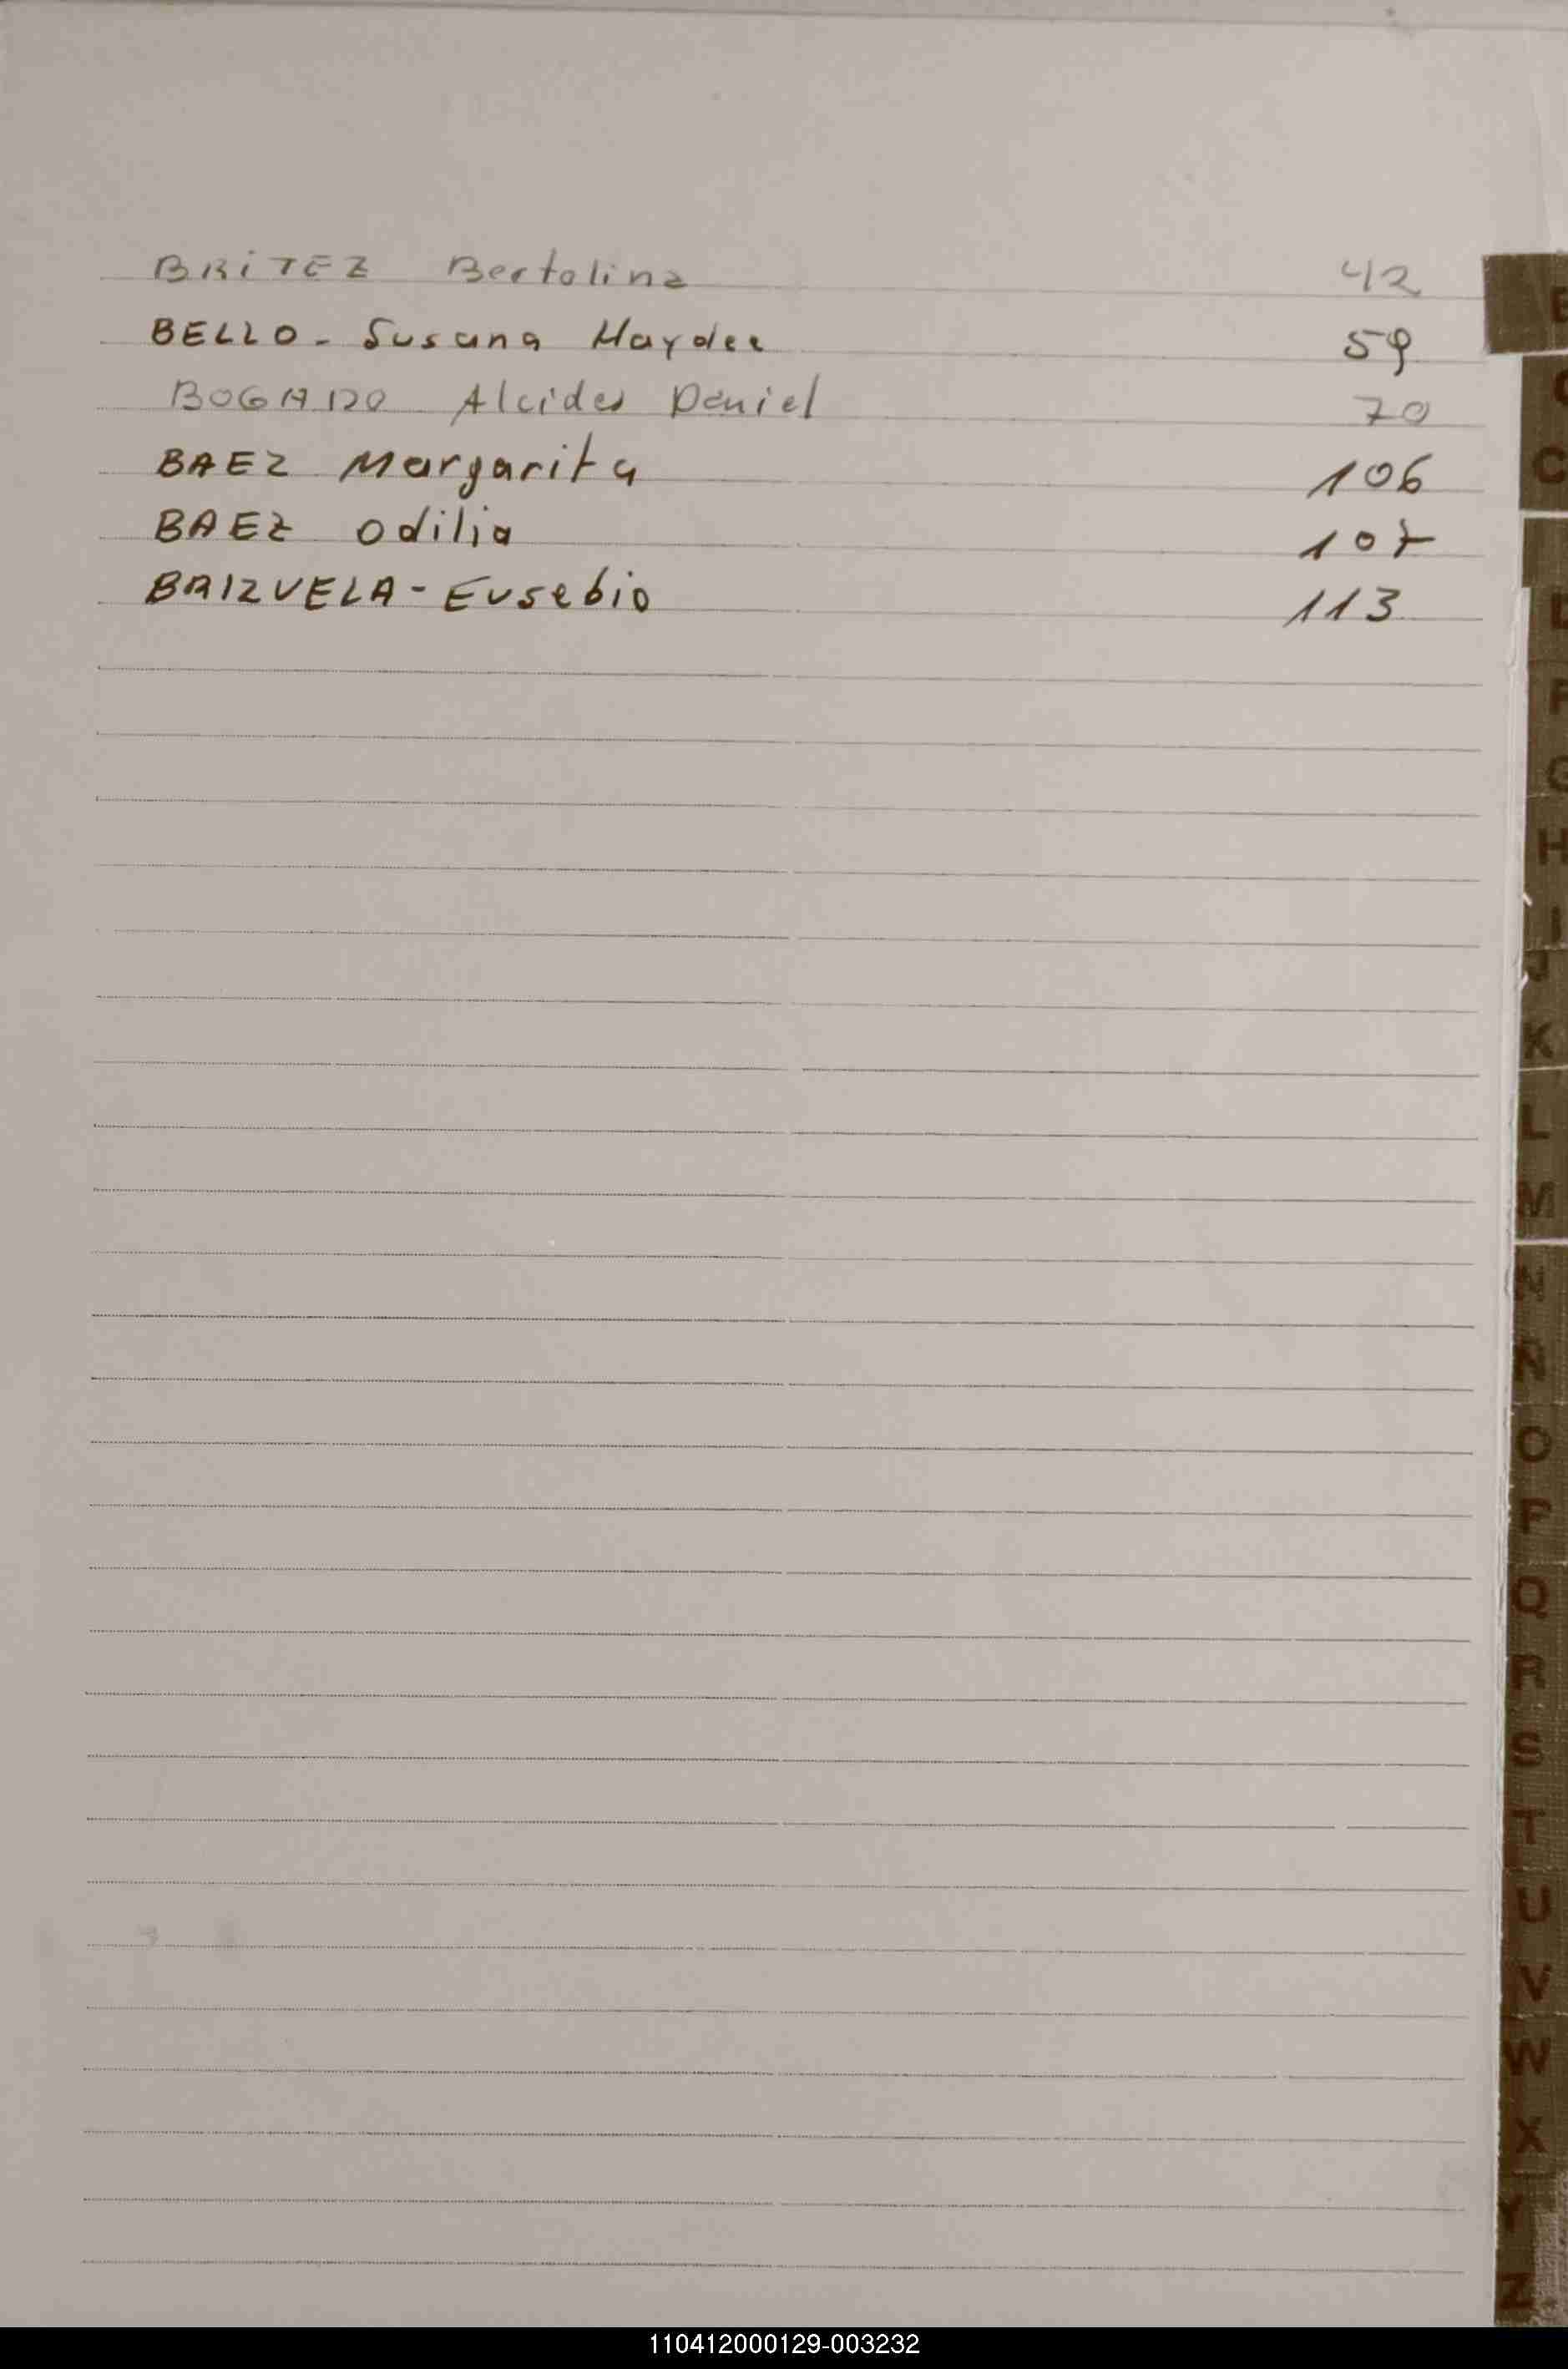 BRITEZ Bertolina 42
BELLO - Susana Haydee 59
BOGADO Alcides Daniel 70
BAEZ Margarita 106
BAEZ Odilia 107
BRIZUELA - Eusebio 113
B
C
C
D
F
G
H
I
J
K
L
M
N
Ñ
O
P
Q
R
S
T
U
V
W
X
Y
Z
110412000129-003232